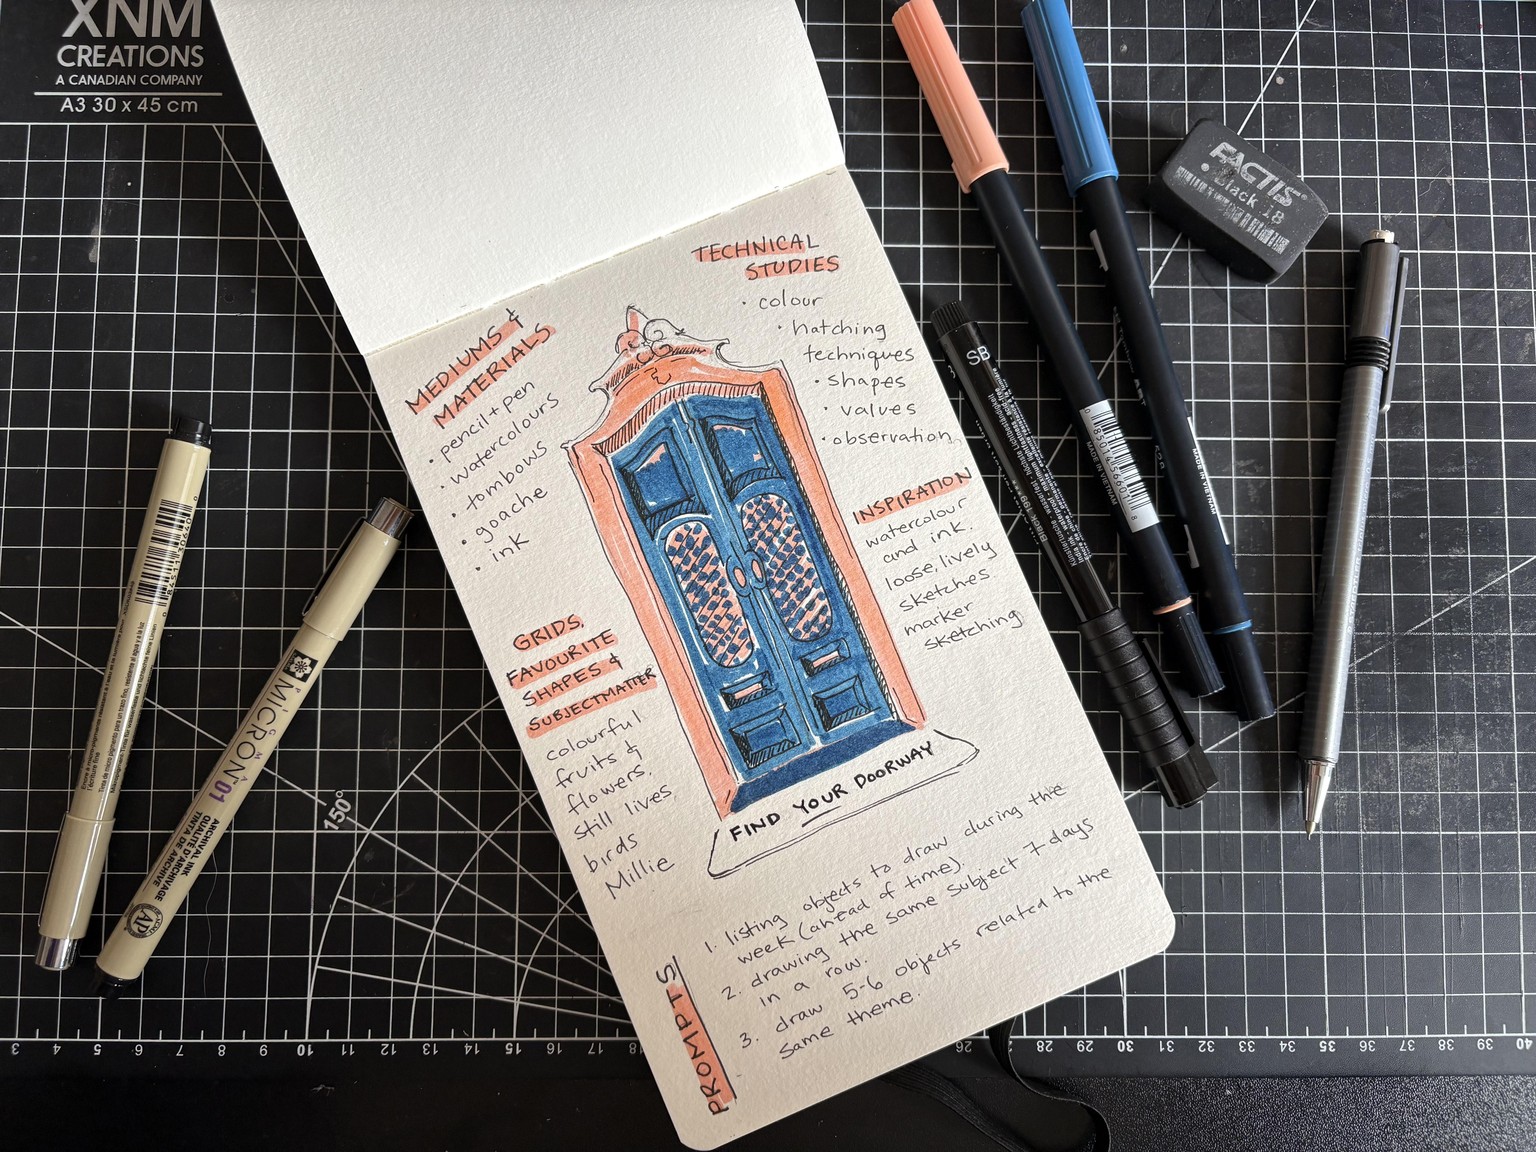 XNM
CREATIONS
A CANADIAN COMPANY
A3 30 x 45 cm
MEDIUMS &
MATERIALS
• pencil + pen
• watercolours
• tombows
• goache
• ink
TECHNICAL
STUDIES
• colour
• hatching
techniques
• shapes
• values
• observation
INSPIRATION
watercolour
and ink.
loose, lively
sketches.
marker
sketching
GRIDS,
FAVOURITE
SHAPES &
SUBJECTMATTER
colourful
fruits &
flowers.
still lives
birds
Millie
FIND YOUR DOORWAY
PROMPTS
1. listing objects to draw during the
week (ahead of time).
2. drawing the same subject 7 days
in a row.
3. draw 5-6 objects related to the
same theme.
FACTIS
Black 18
SB
MADE IN VIETNAM
MADE IN VIETNAM
PIGMA
MICRON 01
ARCHIVAL INK
QUALITÉ D'ARCHIVAGE
TINTA DE ARCHIVE
AP
150°
3 4 5 6 7 8 9 10 11 12 13 14 15 16 17 18
26 28 29 30 31 32 33 34 35 36 37 38 39 40